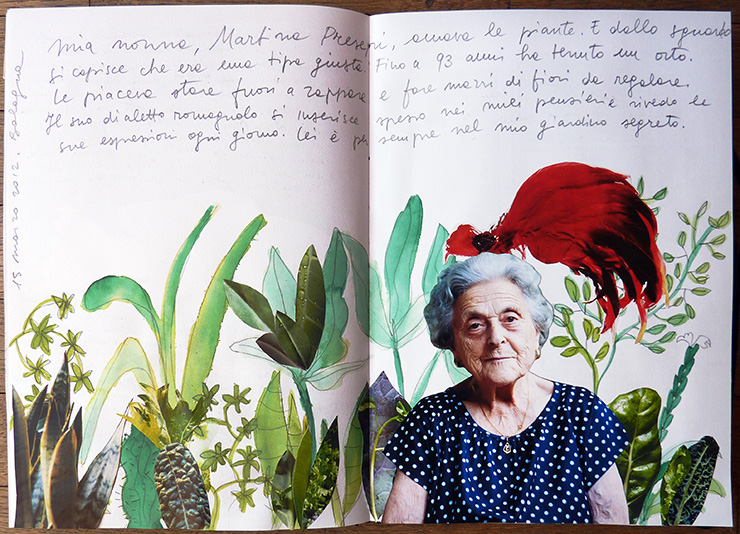 mia nonna, Martina Preseri, amava le piante. E dallo sguardo
si capisce che era una tipa giusta. Fino a 93 anni ha tenuto un orto.
Le piaceva stare fuori a zappare e fare mazzi di fiori da regalare.
Il suo dialetto romagnolo si inserisce spesso nei miei pensieri e rivedo le
sue espressioni ogni giorno. Lei è sempre nel mio giardino segreto.
15 marzo 2012. Bologna